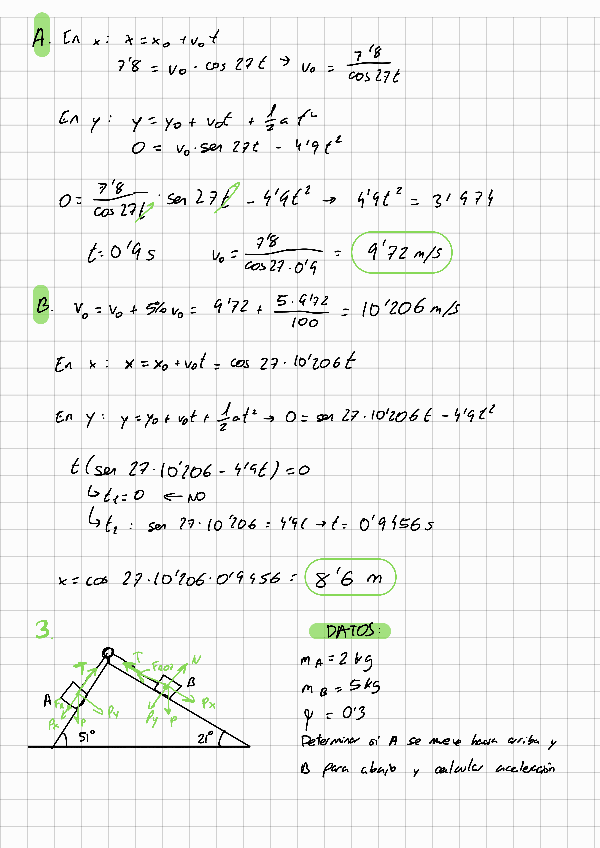 A. En x: x = x₀ + v₀t
7'8 = v₀ · cos 27t → v₀ = 7'8 / cos 27t
En y: y = y₀ + v₀t + 1/2 a t²
0 = v₀ · sen 27t - 4'9t²
0 = 7'8 / cos 27t · sen 27t - 4'9t² → 4'9t² = 3'974
t = 0'9 s v₀ = 7'8 / cos 27 · 0'9 = 9'72 m/s
B. v₀ = v₀ + 5% v₀ = 9'72 + 5 · 9'72 / 100 = 10'206 m/s
En x: x = x₀ + v₀t = cos 27 · 10'206t
En y: y = y₀ + v₀t + 1/2 at² → 0 = sen 27 · 10'206t - 4'9t²
t (sen 27 · 10'206 - 4'9t) = 0
↳ t₁ = 0 ← NO
↳ t₂ : sen 27 · 10'206 = 4'9t → t = 0'9456 s
x = cos 27 · 10'206 · 0'9456 = 8'6 m
3.
DATOS:
T T FROZ N
A B
FR Px Py P
Py P Px
51° 21°
mA = 2 kg
mB = 5 kg
φ = 0'3
Determinar si A se mueve hacia arriba y
B para abajo y calcular aceleración